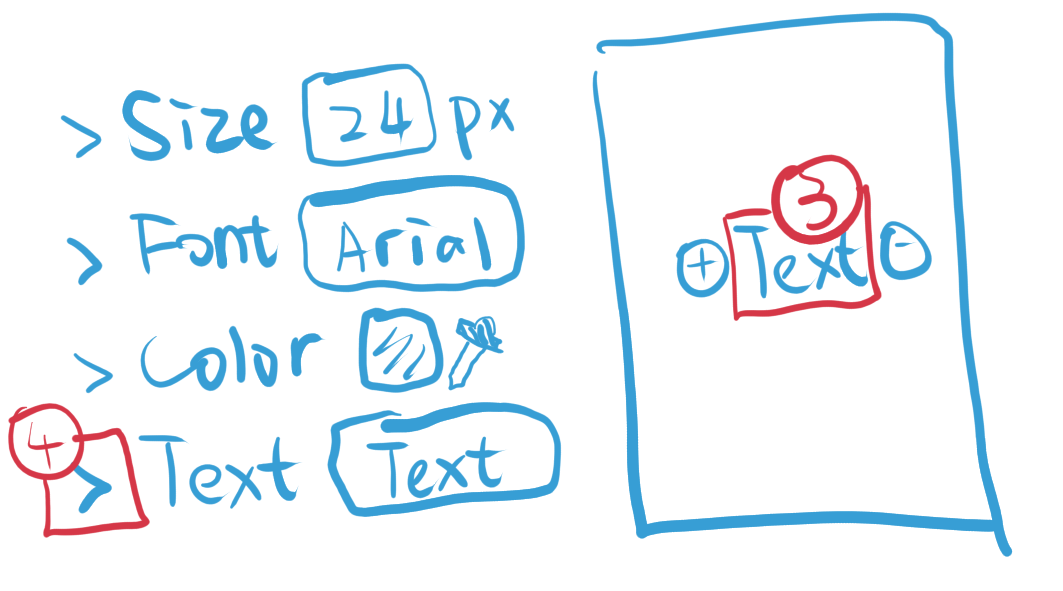 > Size 24 px
> Font Arial
> Color
4
> Text Text
3
+ Text -